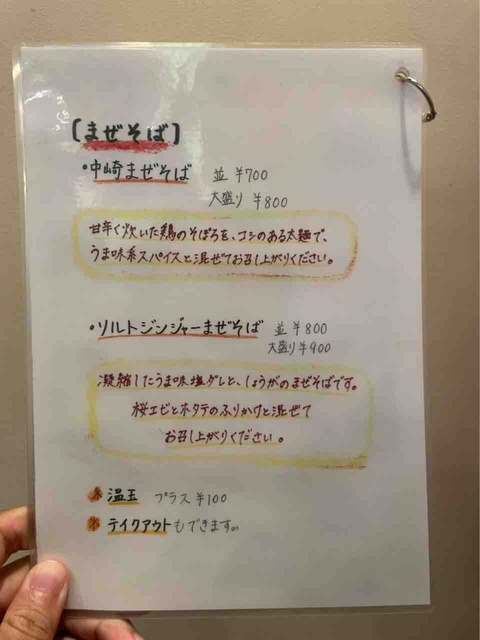 【まぜそば】
・中崎まぜそば 並 ¥700
大盛り ¥800
甘辛く炊いた鶏のそぼろを、コシのある太麺で、
うま味系スパイスと混ぜてお召し上がりください。
・ソルトジンジャーまぜそば 並 ¥800
大盛り ¥900
凝縮したうま味塩ダレと、しょうがのまぜそばです。
桜エビとホタテのふりかけと混ぜて
お召し上がりください。
※温玉 プラス ¥100
※テイクアウトもできます。